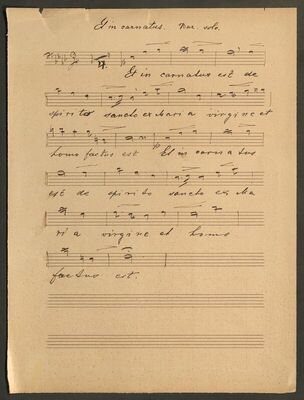 Et in carnatus. Bar. solo.
Et in carnatus est de
spirito sancto ex Maria virgine et
homo factus est Et in carnatus
est de spirito sancto ex Ma
ri a virgine et homo
factus est.